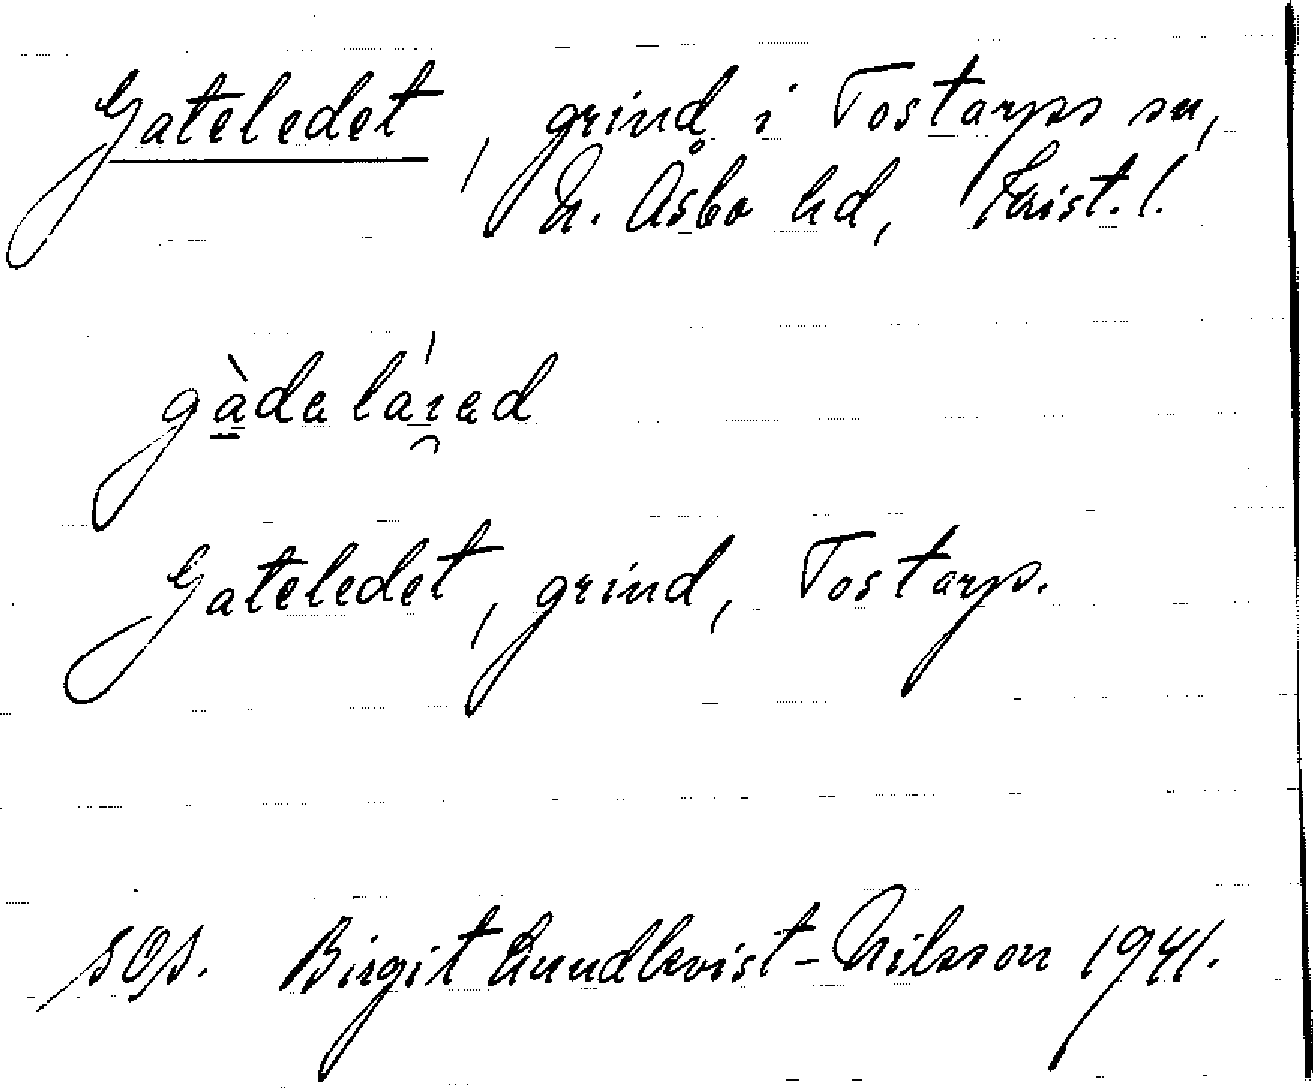 Gateledet, grind i Tostarps sn,
N. Åsbo hd, Krist. l.
gàdaláɪ̯ad
Gateledet, grind, Tostarp.
sOp. Birgit Lundkvist-Nilsson 1941.